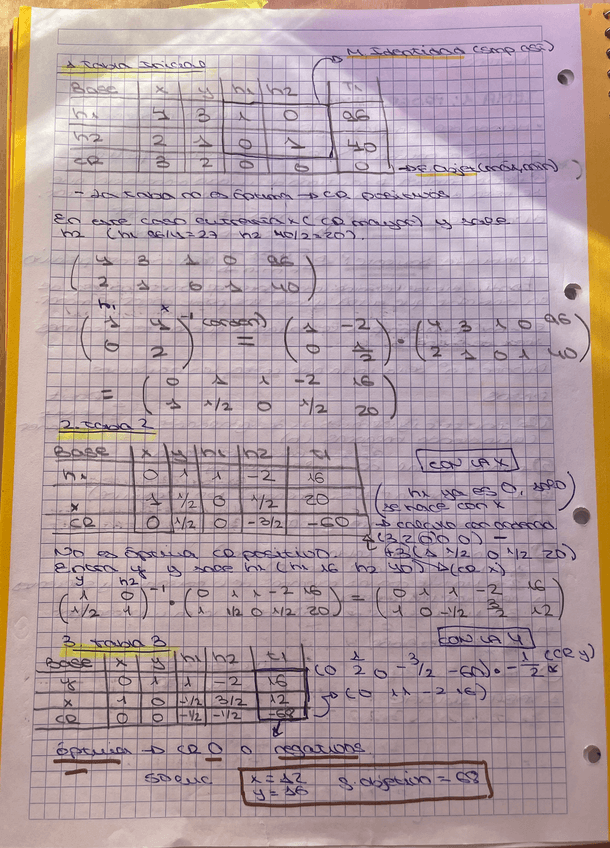 1. Tabla Inicial
M. Identidad
Base x y h1 h2 t1
h1 4 3 1 0 96
h2 2 1 0 1 40
CR 3 2 0 0 0
→ F. Objet (max, min)
- La tabla no es óptima → CR positivos
En este caso entraría x (CR mayor) y sale
h2 (h1 96/4=27 h2 40/2=20).
( 4 3 1 0 96
2 1 0 1 40 )
h1 x
( 1 4
0 2 )⁻¹ = ( 1 -2
0 1/2 ) · ( 4 3 1 0 96
2 1 0 1 40 )
= ( 0 1 1 -2 16
1 1/2 0 1/2 20 )
2. Tabla 2
Base x y h1 h2 t1
h1 0 1 1 -2 16
x 1 1/2 0 1/2 20
CR 0 1/2 0 -3/2 -60
CON LA X
( h1 ya es 0, solo
se hace con x )
(3 2 0 0 0) -
+3 (1 1/2 0 1/2 20)
(CR x)
No es óptima CR positivo.
Entra y y sale h1 (h1 16 h2 40)
y h2
( 1 0
1/2 1 )⁻¹ · ( 0 1 1 -2 16
1 1/2 0 1/2 20 ) = ( 0 1 1 -2 16
1 0 -1/2 3/2 12 )
3. Tabla 3
CON LA Y
Base x y h1 h2 t1
y 0 1 1 -2 16
x 1 0 -1/2 3/2 12
CR 0 0 -1/2 -1/2 -68
(0 1/2 0 -3/2 -60) · -1/2 (CR y)
(0 1 1 -2 16)
Óptima → CR 0 o negativos
x = 12
y = 16
g. objetivo = 68